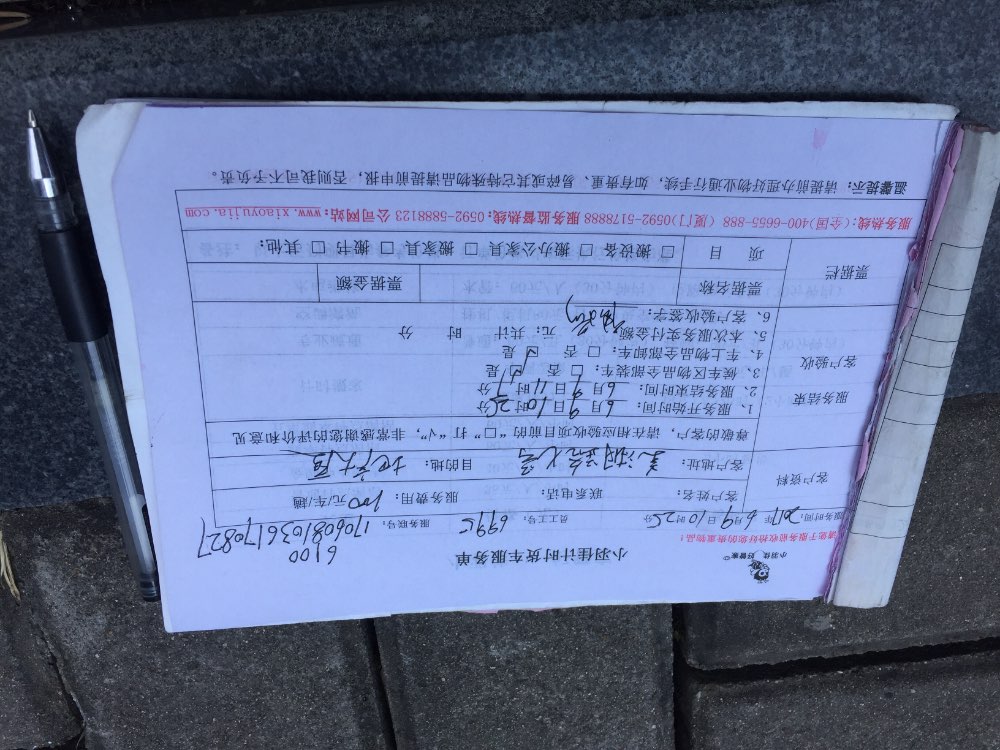 小羽佳 好管家
小羽佳计时货车服务单
6100
请您于服务前收拾好您的贵重物品!
服务时间: 2017年6月9日10时25分 员工号: 6995 服务联号: 1706081036170827
客户资料
客户姓名: 联系电话: 服务费用: 100元/车/趟
客户地址: 目的地:
尊敬的客户, 请在相应验收项目前的“□”打“√”, 非常感谢您的评价和意见
服务结束
客户验收
1、服务开始时间: 6月9日10时25分
2、服务结束时间: 6月9日11时17分
3、候车区物品全部装车: □ 否 ☑ 是
4、车上物品全部卸车: □ 否 ☑ 是
5、本次服务实付金额 元; 共计 时 分
6、客户验收签字:
票据栏
票据名称 票据金额
项目 □ 搬设备 □ 搬办公家具 □ 搬家具 □ 搬书 □ 其他:
服务热线:(全国)400-6655-888 (厦门)0592-5178888 服务监督热线: 0592-5888123 公司网站: www.xiaoyujia.com
温馨提示: 请提前办理好物业通行手续, 如有贵重、易碎或其它特殊物品请提前申报, 否则我司不予负责。